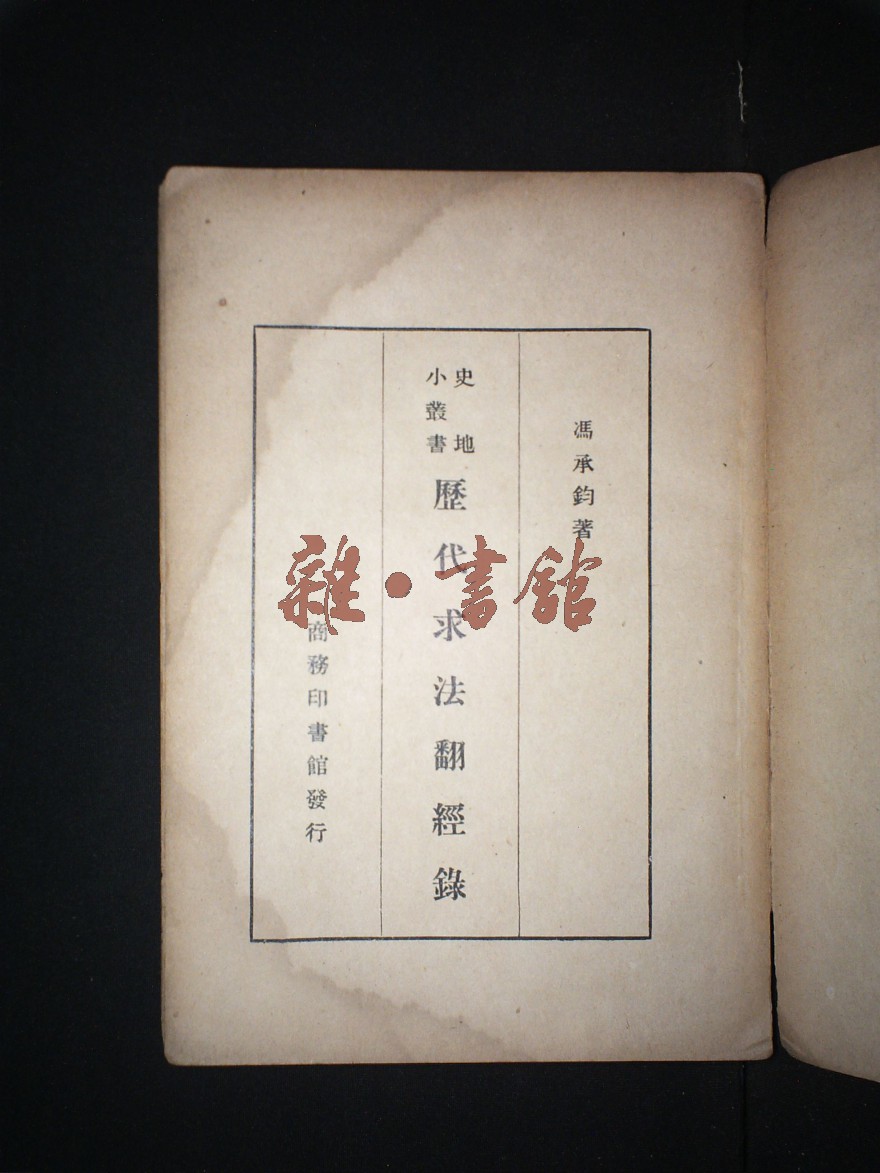 馮承鈞著
史地
小叢書
歷代求法翻經錄
商務印書館發行
雜•書館